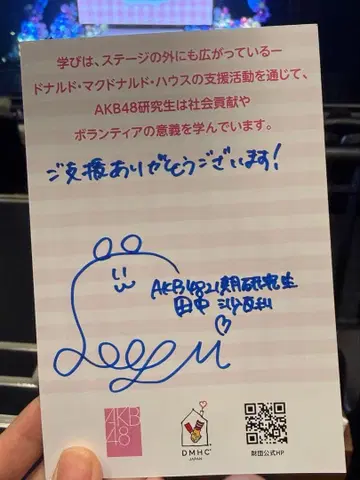 学びは、ステージの外にも広がっているー
ドナルド・マクドナルド・ハウスの支援活動を通じて、
AKB48研究生は社会貢献や
ボランティアの意義を学んでいます。
ご支援ありがとうございます!
AKB48 21期研究生
田中 沙友利
AKB
48
DMHC
JAPAN
財団公式HP